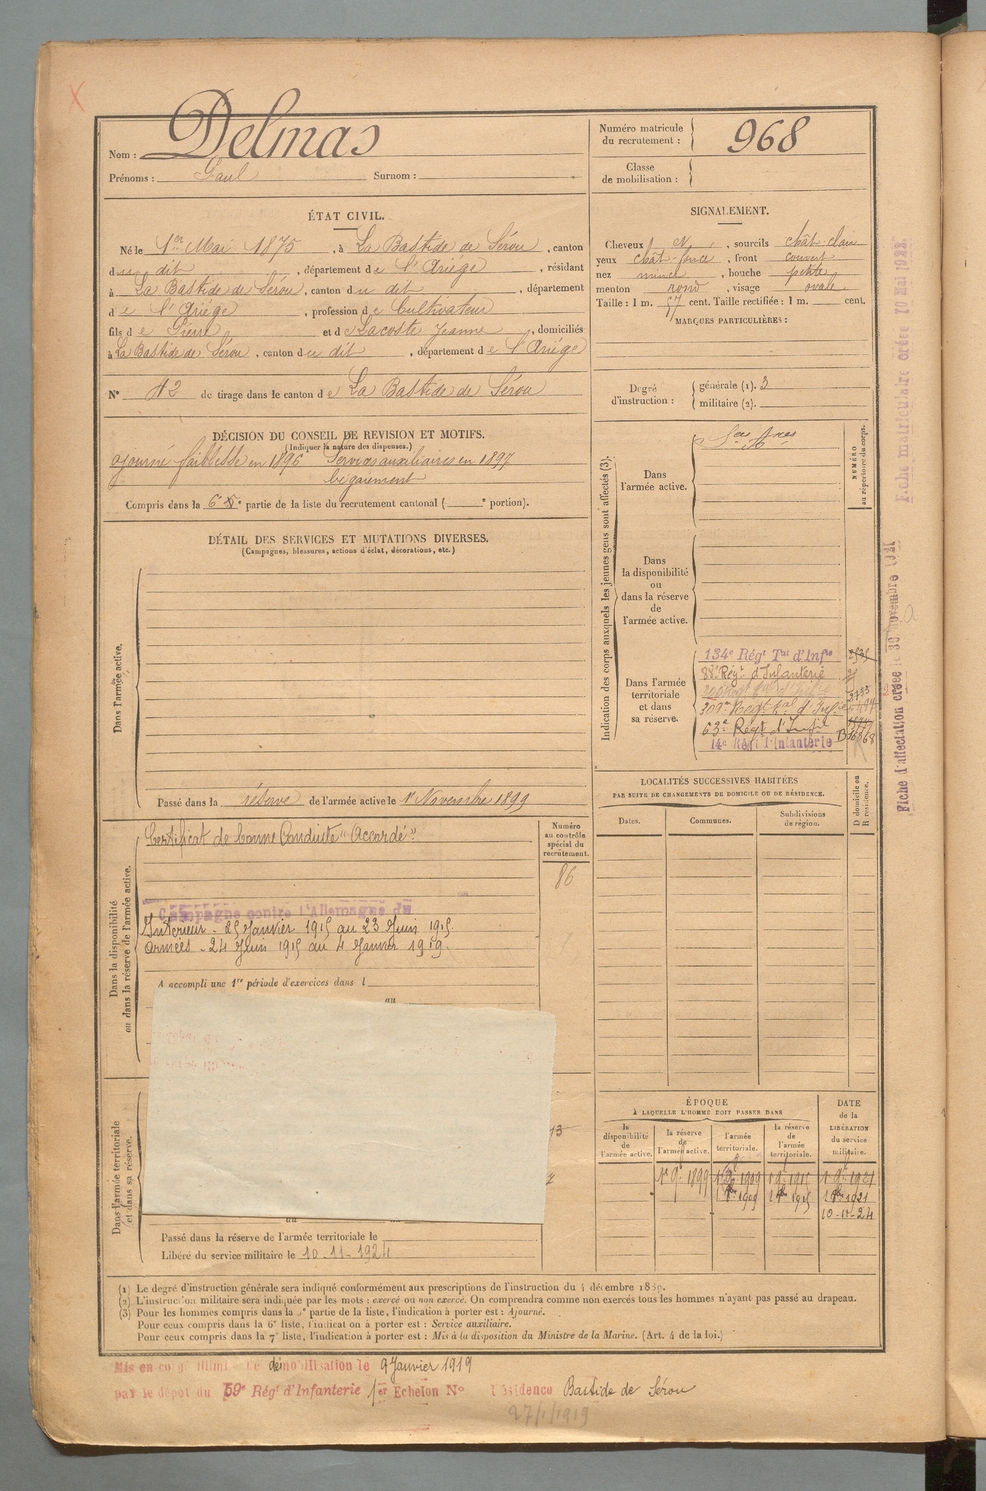 Nom : Delmas
Prénoms : Paul Surnom :
Numéro matricule du recrutement : 968
Classe de mobilisation :
ÉTAT CIVIL.
Né le 1er Mai 1875, à La Bastide de Sérou, canton
du dit, département de l'Ariége, résidant
à La Bastide de Sérou, canton du dit, département
de l'Ariége, profession de Cultivateur
fils de Pierre et de Lacoste Jeanne, domiciliés
à La Bastide de Sérou, canton du dit, département de l'Ariége
N° de tirage dans le canton de La Bastide de Sérou
SIGNALEMENT.
Cheveux N, sourcils chât clair
yeux chât foncé, front couvert
nez mince, bouche petite
menton rond, visage ovale
Taille : 1 m. 57 cent. Taille rectifiée : 1 m. cent.
MARQUES PARTICULIÈRES :
Degré d'instruction : générale (1). 3
militaire (2).
DÉCISION DU CONSEIL DE REVISION ET MOTIFS.
(Indiquer la nature des dispenses.)
ajourné faiblesse en 1896 Services auxiliaires en 1897
bégaiement
Compris dans la 6e partie de la liste du recrutement cantonal ( e portion).
DÉTAIL DES SERVICES ET MUTATIONS DIVERSES.
(Campagnes, blessures, actions d'éclat, décorations, etc.)
Dans l'armée active.
Passé dans la réserve de l'armée active le 1er Novembre 1899
Dans la disponibilité ou dans la réserve de l'armée active.
Certificat de bonne Conduite "Accordé"
Numéro au contrôle spécial du recrutement.
86
Campagne contre l'Allemagne du
Intérieur - 25 Janvier 1915 au 23 Juin 1915.
Armées - 24 Juin 1915 au 4 Janvier 1919.
A accompli une 1re période d'exercices dans l
au
Dans l'armée territoriale et dans sa réserve.
au
Passé dans la réserve de l'armée territoriale le
Libéré du service militaire le 10-11-1924
Indication des corps auxquels les jeunes gens sont affectés (3).
NUMÉRO au répertoire du corps.
Dans l'armée active.
Dans la disponibilité ou dans la réserve de l'armée active.
Dans l'armée territoriale et dans sa réserve.
134e Régt Tal d'Infie
88e Régt d'Infanterie
63e Régt d'Infie
14e Régt d'Infanterie
LOCALITÉS SUCCESSIVES HABITÉES
PAR SUITE DE CHANGEMENTS DE DOMICILE OU DE RÉSIDENCE.
Dates. Communes. Subdivisions de région. D. domicile ou R. résidence.
ÉPOQUE
À LAQUELLE L'HOMME DOIT PASSER DANS
la disponibilité de l'armée active. la réserve de l'armée active. l'armée territoriale. la réserve de l'armée territoriale.
DATE de la LIBÉRATION du service militaire.
10-11-24
(1) Le degré d'instruction générale sera indiqué conformément aux prescriptions de l'instruction du 4 décembre 1889.
(2) L'instruction militaire sera indiquée par les mots : exercé ou non exercé. On comprendra comme non exercés tous les hommes n'ayant pas passé au drapeau.
(3) Pour les hommes compris dans la partie de la liste, l'indication à porter est : Ajourné.
Pour ceux compris dans la 6e liste, l'indication à porter est : Service auxiliaire.
Pour ceux compris dans la 7e liste, l'indication à porter est : Mis à la disposition du Ministre de la Marine. (Art. 4 de la loi.)
Mis en congé illimité de démobilisation le 9 Janvier 1919
par le dépôt du 59e Régt d'Infanterie 1er Echelon N° Résidence Bastide de Sérou
27/1/1919
Fiche matriculaire créée 10 Mai 1922.
Fiche d'affectation créée le 30 Novembre 1921